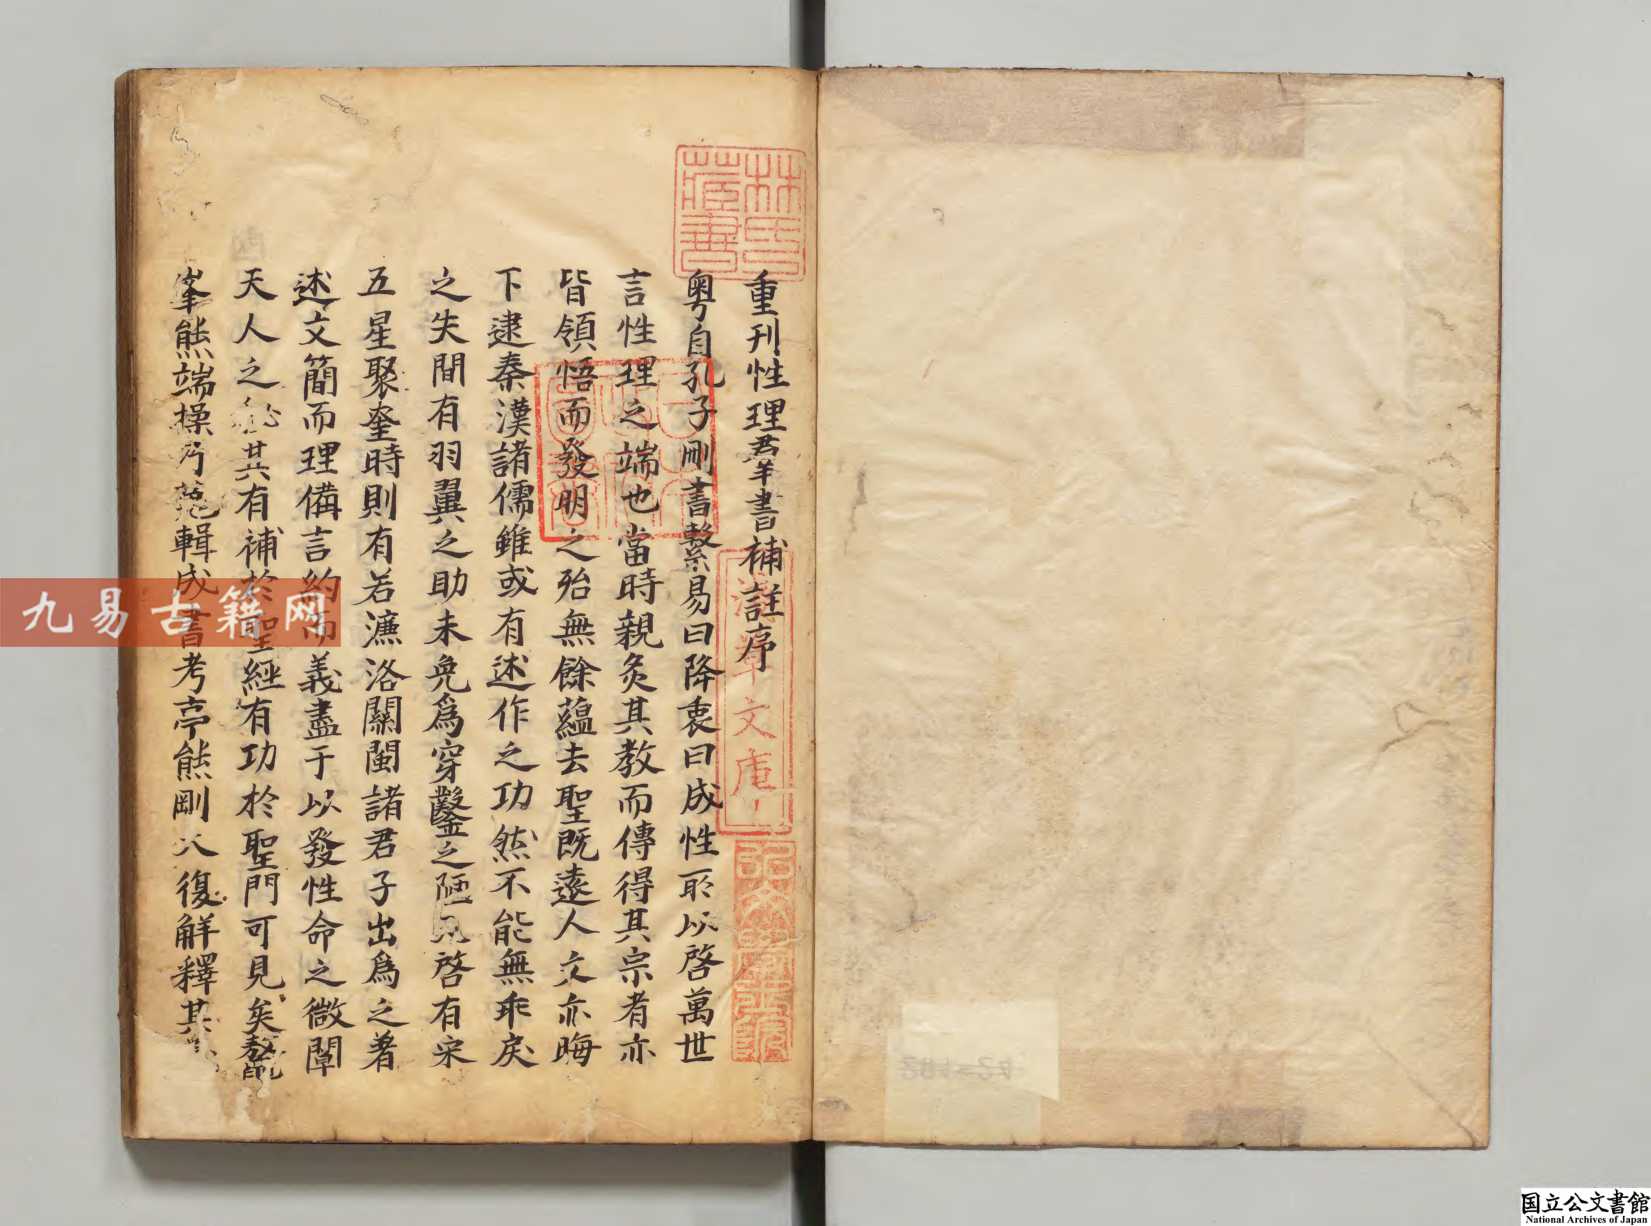 重刊性理羣書補註序
粵自孔子刪書繫易曰降衷曰成性所以啓萬世
言性理之端也當時親炙其教而傳得其宗者亦
皆領悟而發明之殆無餘蘊去聖既遠人文亦晦
下逮秦漢諸儒雖或有述作之功然不能無乖戾
之失間有羽翼之助未免爲穿鑿之陋見啓有宋
五星聚奎時則有若濂洛關閩諸君子出爲之著
述文簡而理備言約而義盡于以發性命之微闡
天人之其有補於聖經有功於聖門可見矣鰲
峯熊端操乃輯成書考亭熊剛大復解釋其
林氏藏書
淺草文庫
弘文學士院
九易古籍网
国立公文書館
National Archives of Japan